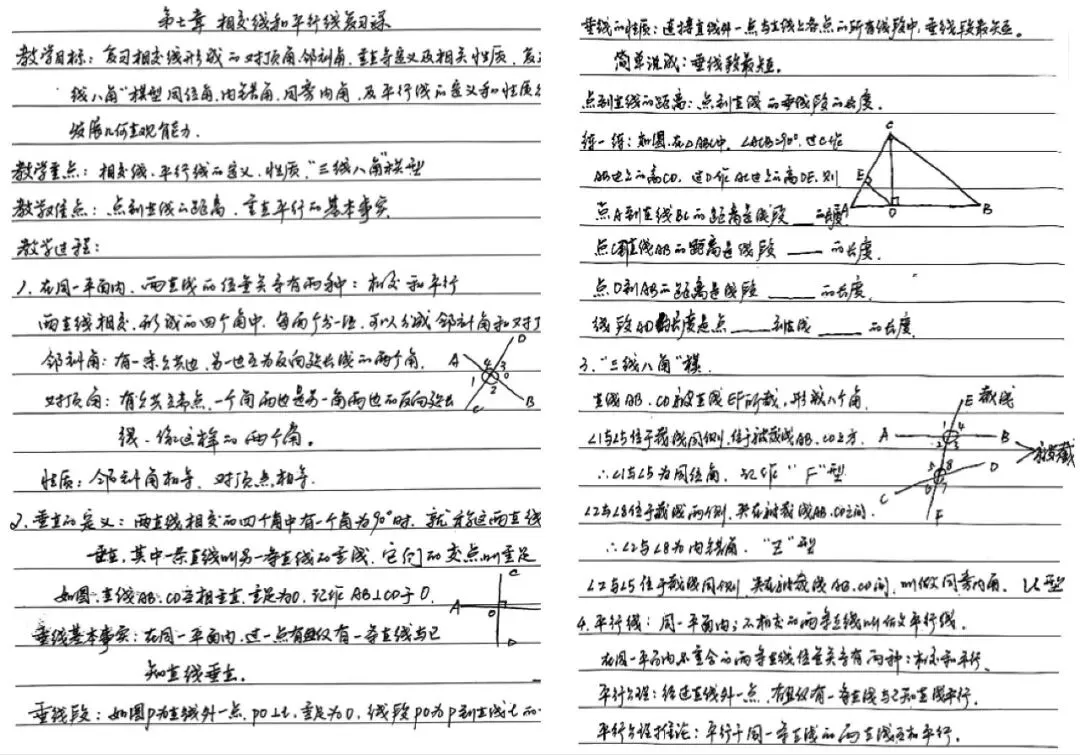 第七章 相交线和平行线复习课
教学目标：复习相交线形成的对顶角、邻补角、垂直等定义及相关性质，复
线八角"模型同位角、内错角、同旁内角，及平行线的定义和性质
发展几何直观能力.
教学重点：相交线、平行线的定义、性质、"三线八角"模型
教学难点：点到直线的距离，垂直平行的基本事实
教学过程：
1. 在同一平面内，两直线的位置关系有两种：相交和平行
两直线相交，形成的四个角中，每两个分一组，可以分成邻补角和对顶
邻补角：有一条公共边，另一边互为反向延长线的两个角.
对顶角：有公共端点，一个角两边是另一角两边的反向延长
线，像这样的两个角。
性质：邻补角相等，对顶点相等.
A D 4 3 1 2 O C B
2. 垂直的定义：两直线相交的四个角中有一个角为90°时，就称这两直线
垂直，其中一条直线叫另一条直线的垂线，它们的交点叫垂足
如图，直线AB、CD互相垂直，垂足为O，记作 AB⊥CD于O.
C A O D
垂线基本事实：在同一平面内，过一点有且仅有一条直线与已
知直线垂直.
垂线段：如图P为直线外一点，PO⊥l，垂足为O，线段PO为P到直线l的
垂线的性质：连接直线外一点与直线上各点的所有线段中，垂线段最短。
简单说成：垂线段最短.
点到直线的距离：点到直线的垂线段的长度.
练一练：如图，在△ABC中，∠ACB=90°，过C作
AB边上的高CD，过D作AC边上的高DE，则
点A到直线BC的距离是线段___的长度.
点C到直线AB的距离是线段___的长度.
点D到AB的距离是线段____的长度.
线段AD的长度是点____到直线____的长度.
C E A D B
3. "三线八角"模.
直线AB、CD被直线EF所截，形成八个角.
∠1与∠5位于截线同侧，位于被截线AB、CD上方.
∴∠1与∠5为同位角，记作"F"型
∠2与∠8位于截线两侧，夹在被截线AB、CD之间.
∴∠2与∠8为内错角，"Z"型
∠2与∠5位于截线同侧，夹在被截线AB、CD间，叫做同旁内角，U型
E 截线 A 1 4 B 2 3 被截 5 8 D C 6 7 F
4. 平行线：同一平面内，不相交的两条直线叫做平行线.
在同一平面内不重合的两条直线位置关系有两种：相交和平行.
平行公理：经过直线外一点，有且仅有一条直线与已知直线平行.
平行公理推论：平行于同一条直线的两直线互相平行.